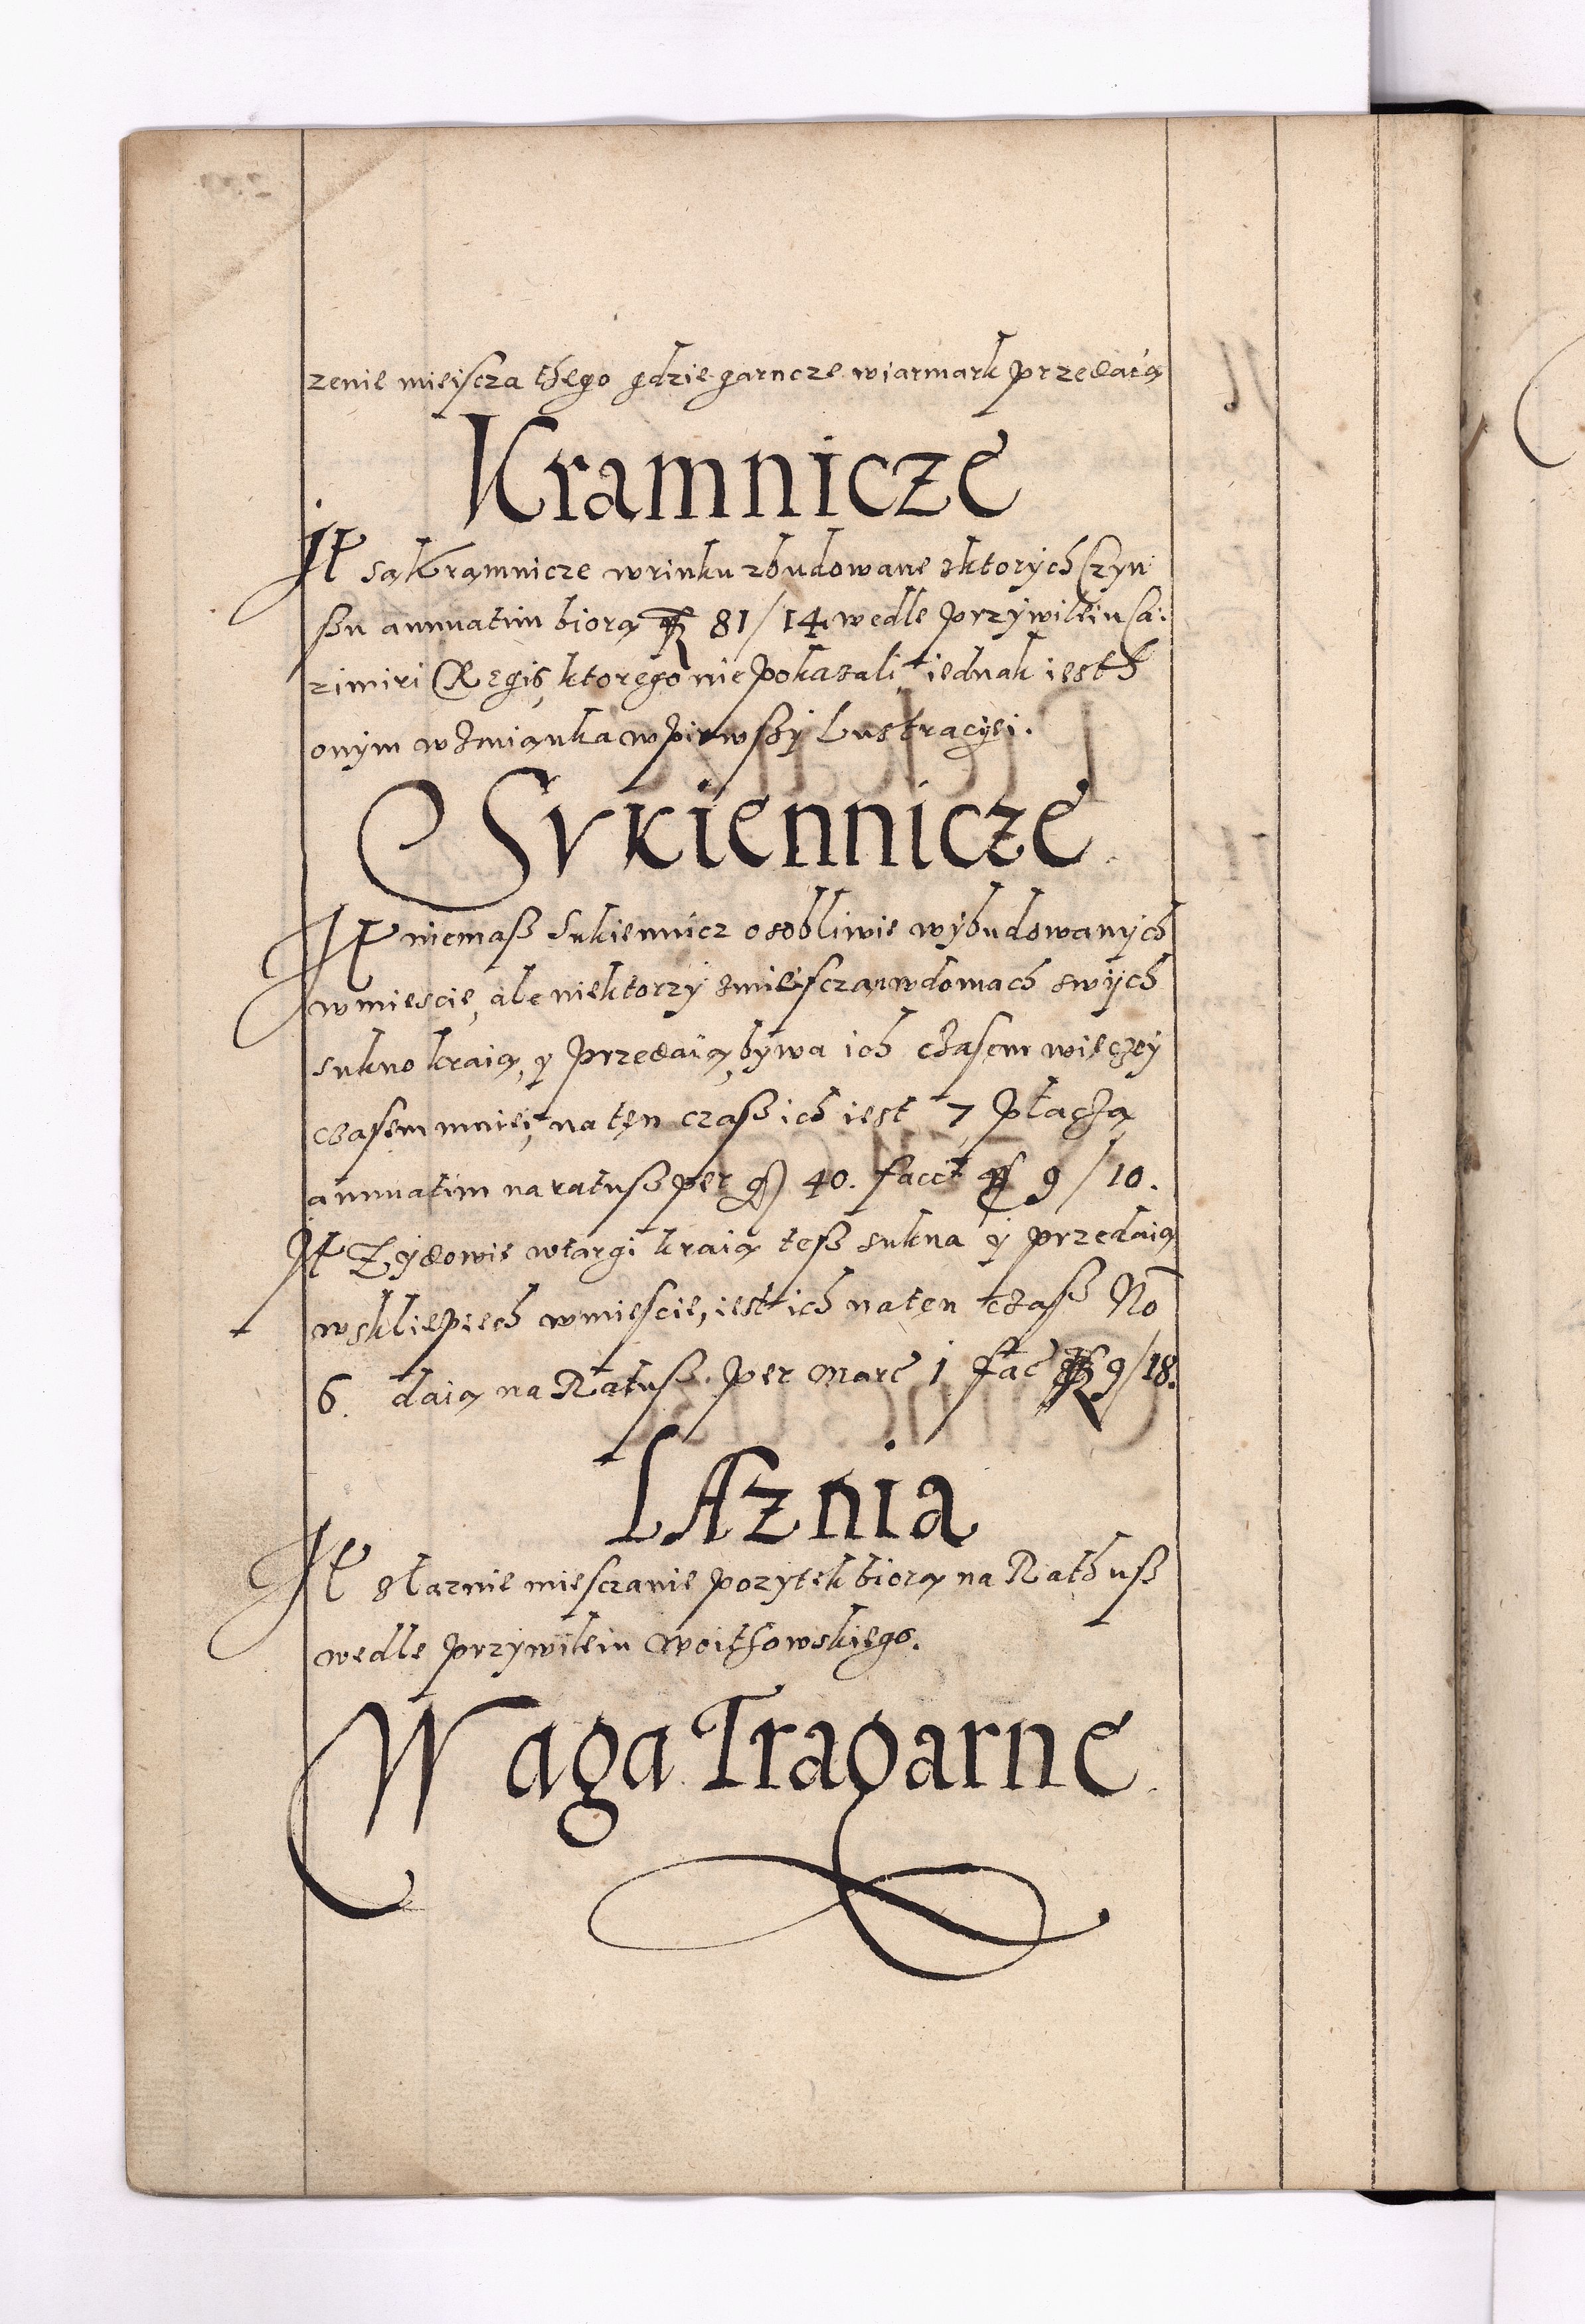 zenie mieiscza thego gdzie garncze wiarmark przedaią
Kramnicze
It są Kramnicze w rinku zbudowane z ktorých Czyn
szu annuatim biorą 81/14 wedle przýwileiu Ca:
zimiri Regis, ktorego nie pokazali, iednak iesth
onym wzmianka w pirwszý Lustracýei.
Svkiennicze
It niemasz Sukiennicz osobliwie wýbudowaných
w miescie, ale niektorzý z miesczan w domach swých
sukno kraią, ý przedaią, býwa ich czasem wieczeý
czasem mniei, na ten czasz ich iest 7 płaczą
annuatim na ratusz per g 40. facit 9/10.
It Zýdowie w targi kraią tesz sukna ý przedaią
w skliepiech w miescie, iest ich na ten czasz No
6. daią na Ratusz. per marc 1 fac 9/18.
LAznia
It z łaznie miesczanie pozytek biorą na Rathusz
wedle przýwileiu woithowskiego.
Waga Tragarne